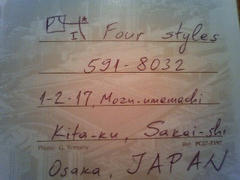 Four styles
591-8032
1-2-17, Mozu-umemachi
Kita-ku, Sakai-shi
Osaka, JAPAN